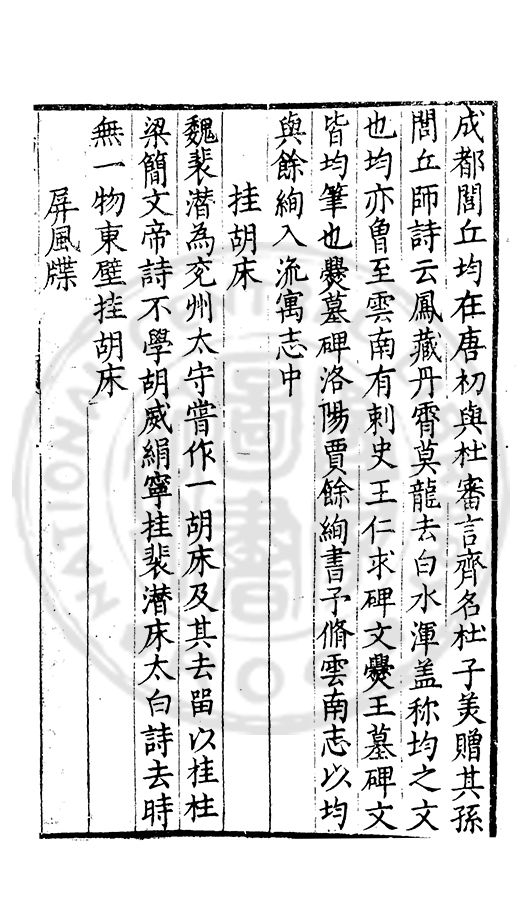 成都閭丘均在唐初與杜審言齊名杜子美贈其孫
閭丘師詩云鳳藏丹霄莫龍去白水渾盖称均之文
也均亦曾至雲南有刺史王仁求碑文爨王墓碑文
皆均筆也爨墓碑洛陽賈餘絢書予脩雲南志以均
與餘絢入流寓志中
挂胡床
魏裴潜為兖州太守嘗作一胡床及其去畱以挂柱
梁簡文帝詩不學胡威絹寧挂裴潜床太白詩去時
無一物東壁挂胡床
屏風牒